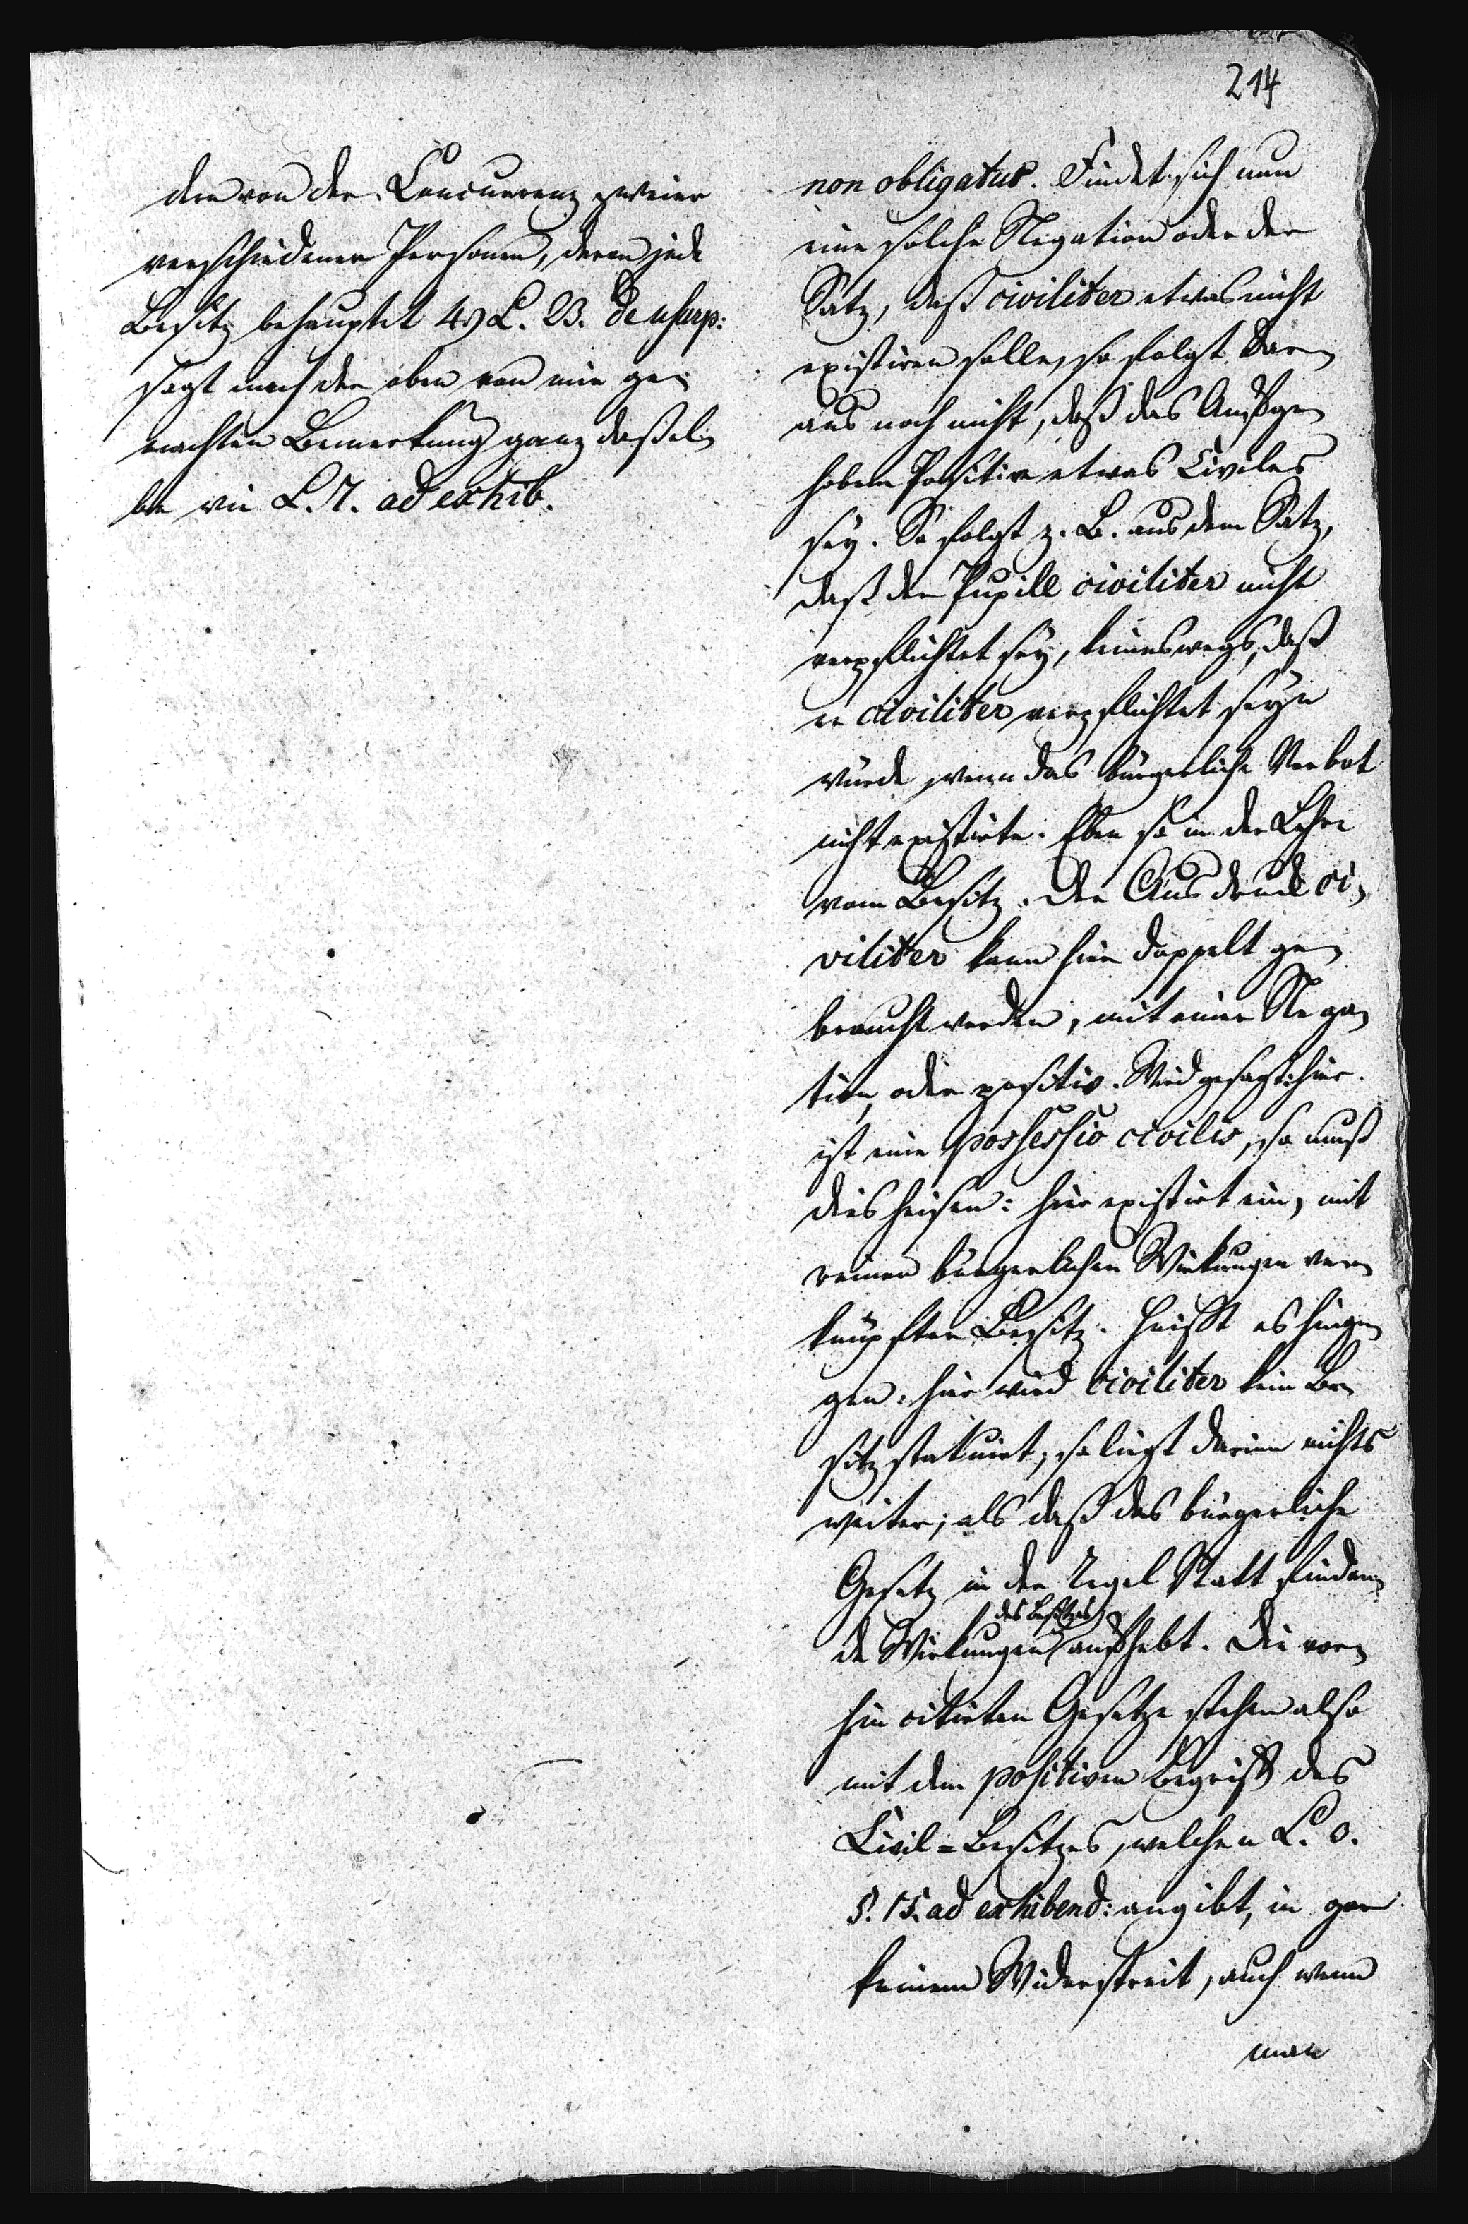 214
dern von der Concurrenz zweier
verschiedener Personen, deren jede
Besitz behauptet 4.) L. 23. de usurp:
sagt nach der oben von mir ge-
machten Bemerkung ganz daßel-
be wie L. 7. ad exhib.
non obligatus. Findet sich nun
eine solche Negation oder der
Satz, daß civiliter etwas nicht
existiren solle, so folgt dar-
aus noch nicht, daß das Aufge-
hobene Positive etwas Civiles
sey. So folgt z. B. aus dem Satz,
daß der Pupill civiliter nicht
verpflichtet sey, keineswegs, daß
er civiliter verpflichtet seyn
würde, wenn das bürgerliche Verbot
nicht existirte. Eben so in der Lehre
vom Besitz. Der Ausdruck ci-
viliter kann hier doppelt ge-
braucht werden, mit einer Nega-
tion, oder positiv. Wird gesagt: hier
ist eine possessio civilis, so muß
dies heisen: hier existirt ein, mit
reinen bürgerlichen Wirkungen ver-
knüpfter Besitz. Heißt es hinge-
gen: hier wird civiliter kein Be-
sitz statuirt, so liegt darinn nichts
weiter, als daß das bürgerliche
Gesetz in der Regel Statt finden-
des Besitzes
de Wirkungen aufhebt. Die vor-
hin citirten Gesetze stehen also
mit dem positiven Begriff des
Civil-Besitzes, welchen L. 3.
§. 15. ad exhibend: angibt, in gar
keinem Widerstreit, auch wenn
man